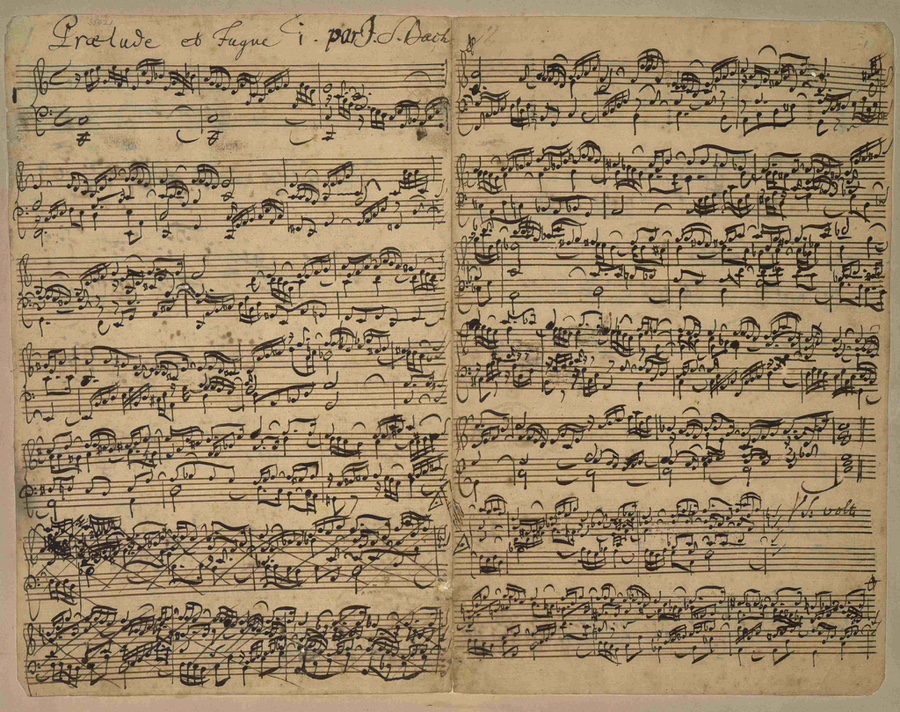 Prælude et Fugue i. par J. S. Bach
V. S. volti